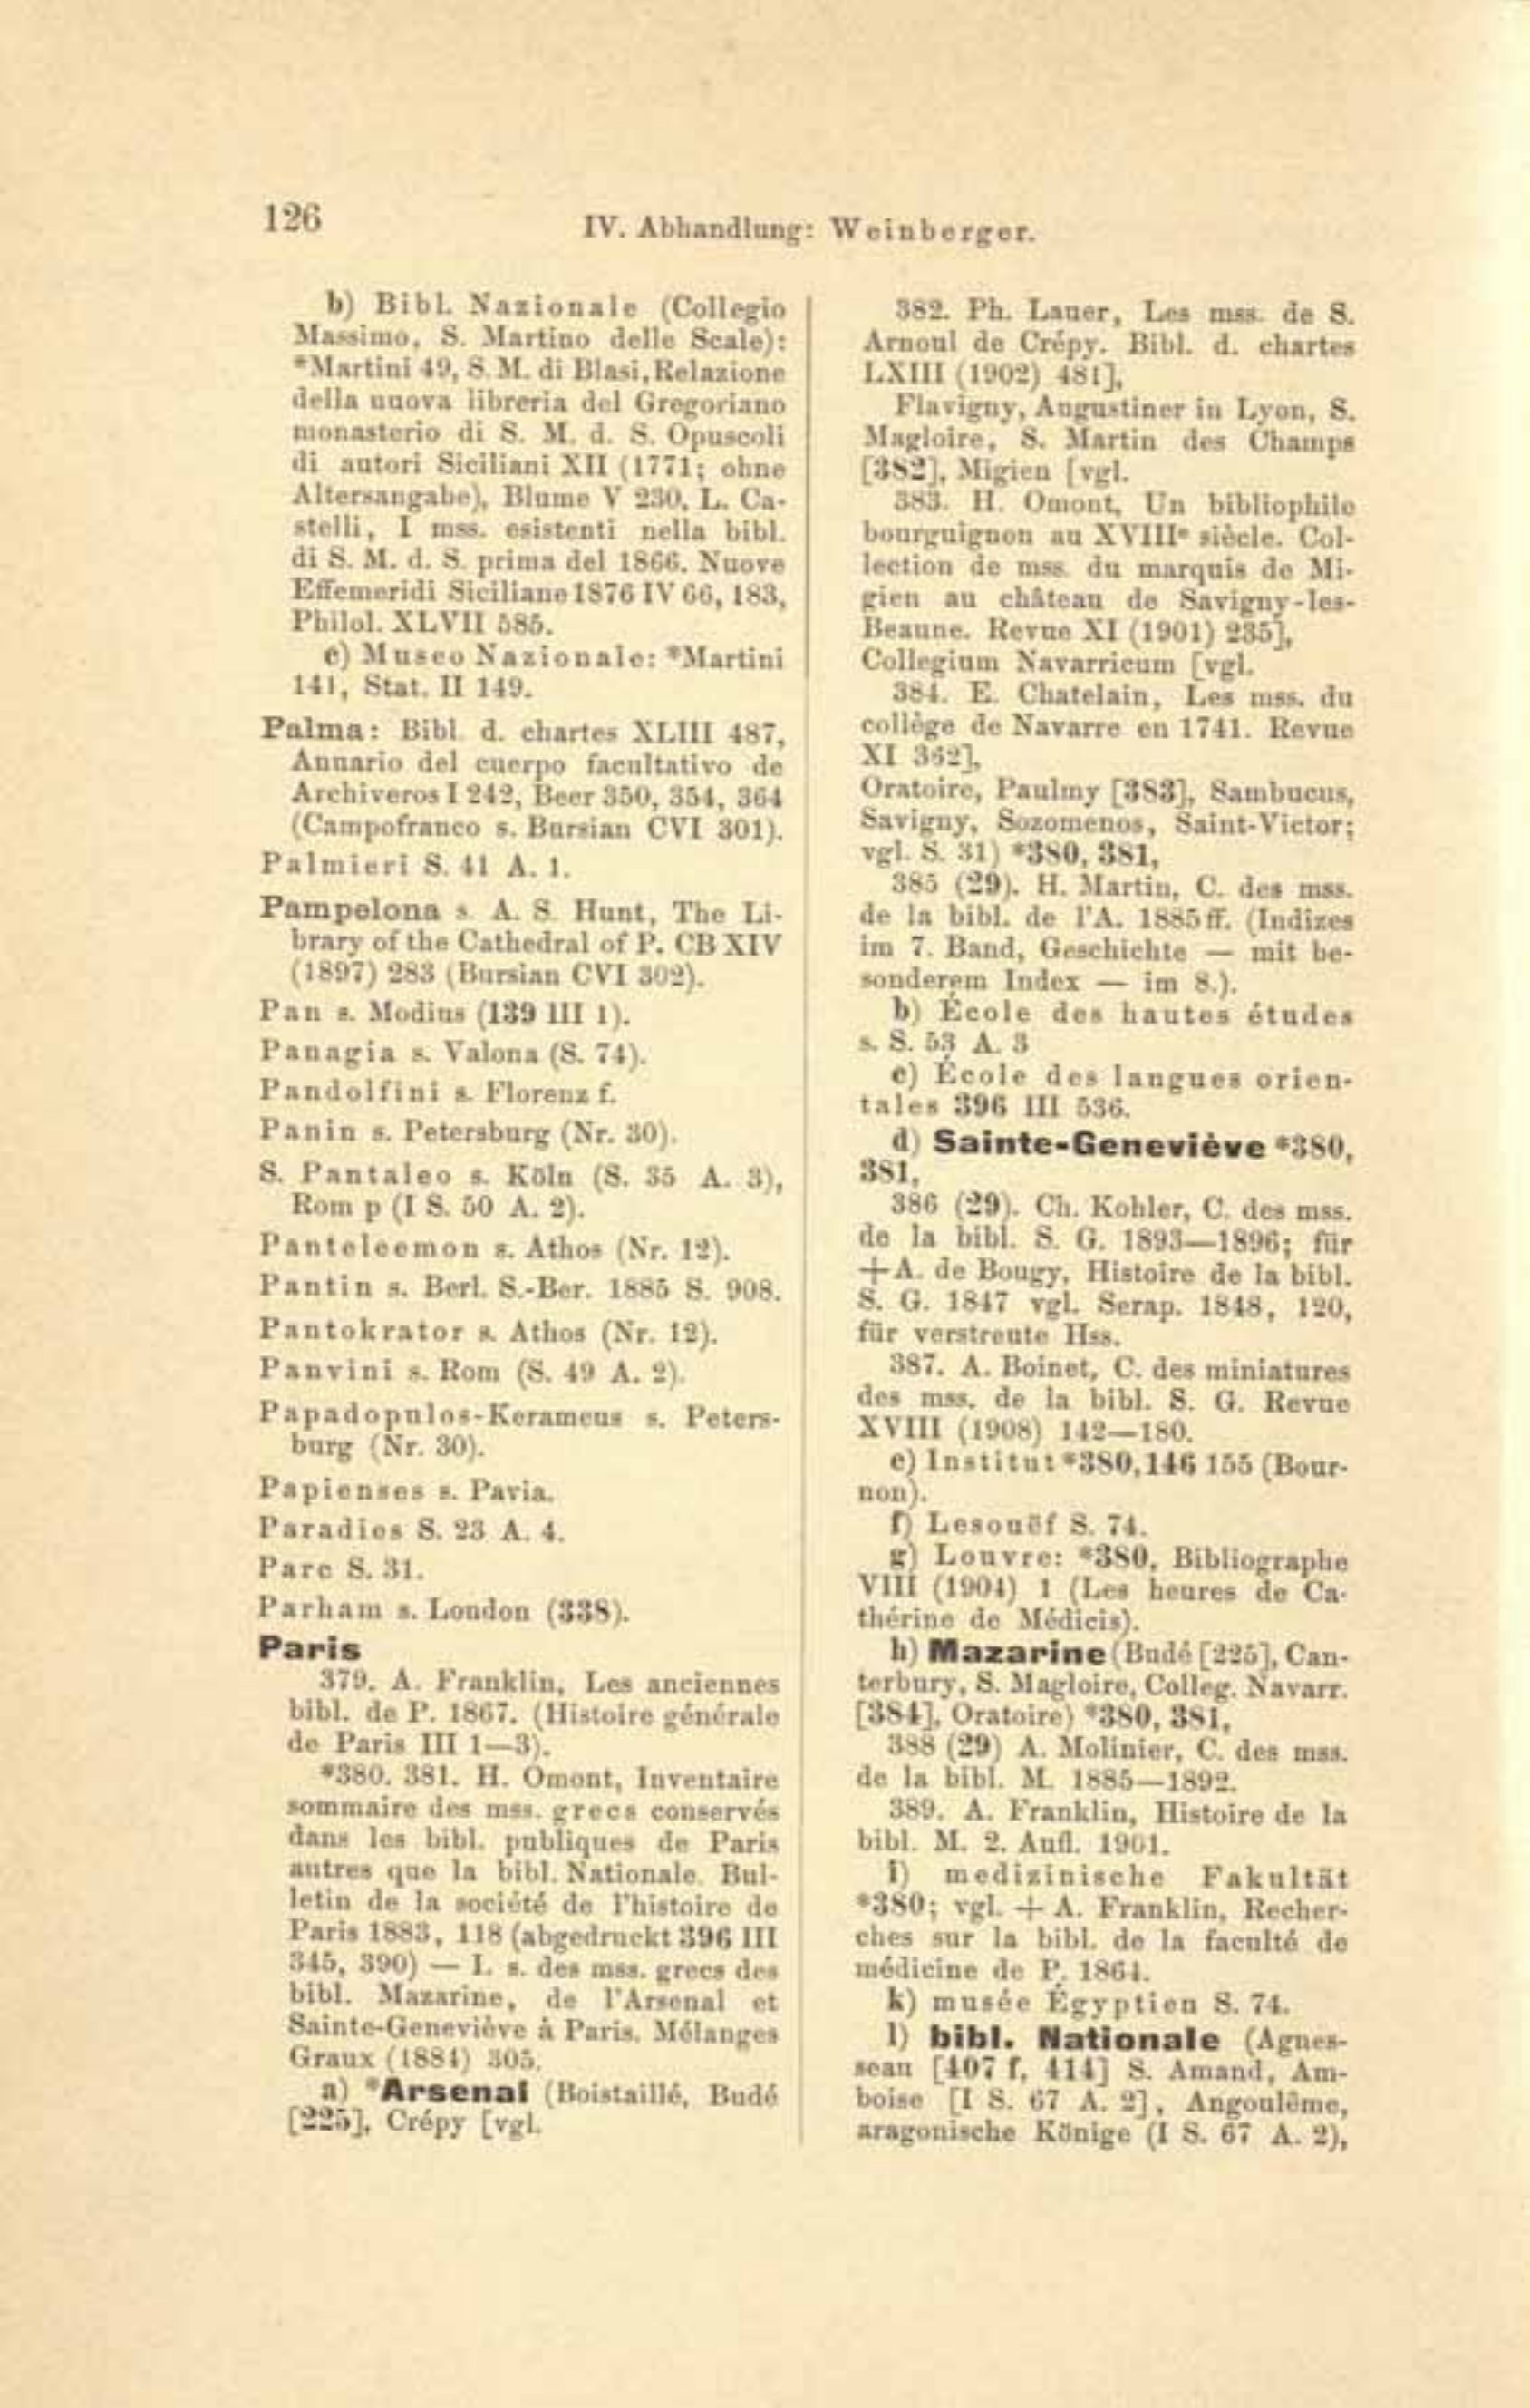 126
IV. Abhandlung: Weinberger.
b) Bibl. Nazionale (Collegio
Massimo, S. Martino delle Scale):
*Martini 49, S. M. di Blasi, Relazione
della nuova libreria del Gregoriano
monasterio di S. M. d. S. Opuscoli
di autori Siciliani XII (1771; ohne
Altersangabe), Blume V 230, L. Ca-
stelli, I mss. esistenti nella bibl.
di S. M. d. S. prima del 1866. Nuove
Effemeridi Siciliane 1876 IV 66, 183,
Philol. XLVII 585.
c) Museo Nazionale: *Martini
141, Stat. II 149.
Palma: Bibl. d. chartes XLIII 487,
Annario del cuerpo facultativo de
Archiveros I 242, Beer 350, 354, 364
(Campofranco s. Bursian CVI 301).
Palmieri S. 41 A. 1.
Pampelona s. A. S. Hunt, The Li-
brary of the Cathedral of P. CB XIV
(1897) 283 (Bursian CVI 302).
Pan s. Modius (139 III 1).
Panagia s. Valona (S. 74).
Pandolfini s. Florenz f.
Panin s. Petersburg (Nr. 30).
S. Pantaleo s. Köln (S. 35 A. 3),
Rom p (I S. 50 A. 2).
Panteleemon s. Athos (Nr. 12).
Pantin s. Berl. S.-Ber. 1885 S. 908.
Pantokrator s. Athos (Nr. 12).
Panvini s. Rom (S. 49 A. 2).
Papadopulos-Kerameus s. Peters-
burg (Nr. 30).
Papienses s. Pavia.
Paradies S. 23 A. 4.
Parc S. 31.
Parham s. London (338).
Paris
379. A. Franklin, Les anciennes
bibl. de P. 1867. (Histoire générale
de Paris III 1—3).
*380. 381. H. Omont, Inventaire
sommaire des mss. grecs conservés
dans les bibl. publiques de Paris
autres que la bibl. Nationale. Bul-
letin de la société de l'histoire de
Paris 1883, 118 (abgedruckt 396 III
345, 390) — I. s. des mss. grecs des
bibl. Mazarine, de l'Arsenal et
Sainte-Geneviève à Paris. Mélanges
Graux (1884) 305.
a) *Arsenal (Boistaillé, Budé
[225], Crépy [vgl.
382. Ph. Lauer, Les mss. de S.
Arnoul de Crépy. Bibl. d. chartes
LXIII (1902) 481],
Flavigny, Augustiner in Lyon, S.
Magloire, S. Martin des Champs
[382], Migien [vgl.
383. H. Omont, Un bibliophile
bourguignon au XVIIIe siècle. Col-
lection de mss. du marquis de Mi-
gien au château de Savigny-les-
Beaune. Revue XI (1901) 235],
Collegium Navarricum [vgl.
384. E. Chatelain, Les mss. du
collège de Navarre en 1741. Revue
XI 362],
Oratoire, Paulmy [383], Sambucus,
Savigny, Sozomenos, Saint-Victor;
vgl. S. 31) *380, 381,
385 (29). H. Martin, C. des mss.
de la bibl. de l'A. 1885 ff. (Indizes
im 7. Band, Geschichte — mit be-
sonderem Index — im 8.).
b) École des hautes études
s. S. 53 A. 3
c) École des langues orien-
tales 396 III 536.
d) Sainte-Geneviève *380,
381,
386 (29). Ch. Kohler, C. des mss.
de la bibl. S. G. 1893—1896; für
+A. de Bougy, Histoire de la bibl.
S. G. 1847 vgl. Serap. 1848, 120,
für verstreute Hss.
387. A. Boinet, C. des miniatures
des mss. de la bibl. S. G. Revue
XVIII (1908) 142—180.
e) Institut *380, 146 155 (Bour-
non).
f) Lesouëf S. 74.
g) Louvre: *380, Bibliographe
VIII (1904) 1 (Les heures de Ca-
thérine de Médicis).
h) Mazarine (Budé [225], Can-
terbury, S. Magloire, Colleg. Navarr.
[384], Oratoire) *380, 381,
388 (29) A. Molinier, C. des mss.
de la bibl. M. 1885—1892.
389. A. Franklin, Histoire de la
bibl. M. 2. Aufl. 1901.
i) medizinische Fakultät
*380; vgl. + A. Franklin, Recher-
ches sur la bibl. de la faculté de
médicine de P. 1864.
k) musée Égyptien S. 74.
l) bibl. Nationale (Agues-
seau [407 f, 414] S. Amand, Am-
boise [I S. 67 A. 2], Angoulême,
aragonische Könige (I S. 67 A. 2),